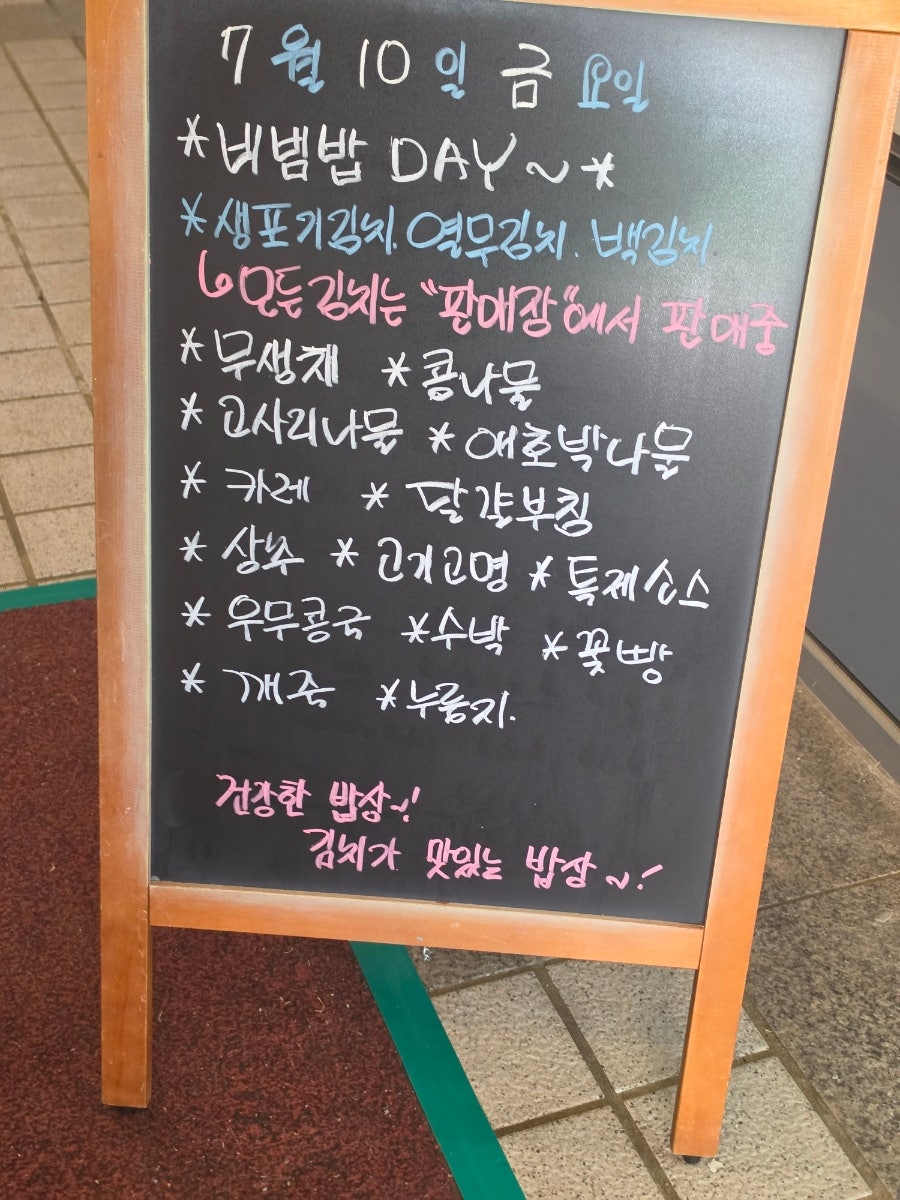 7월 10일 금요일
*비빔밥 DAY~*
*생포기김치. 열무김치. 백김치
↳모든김치는 "판매장"에서 판매중
*무생채 *콩나물
*고사리나물 *애호박나물
*카레 *달걀부침
*상추 *고기고명 *특제소스
*우무콩국 *수박 *꽃빵
*깨죽 *누룽지.
건강한 밥상~!
김치가 맛있는 밥상~!